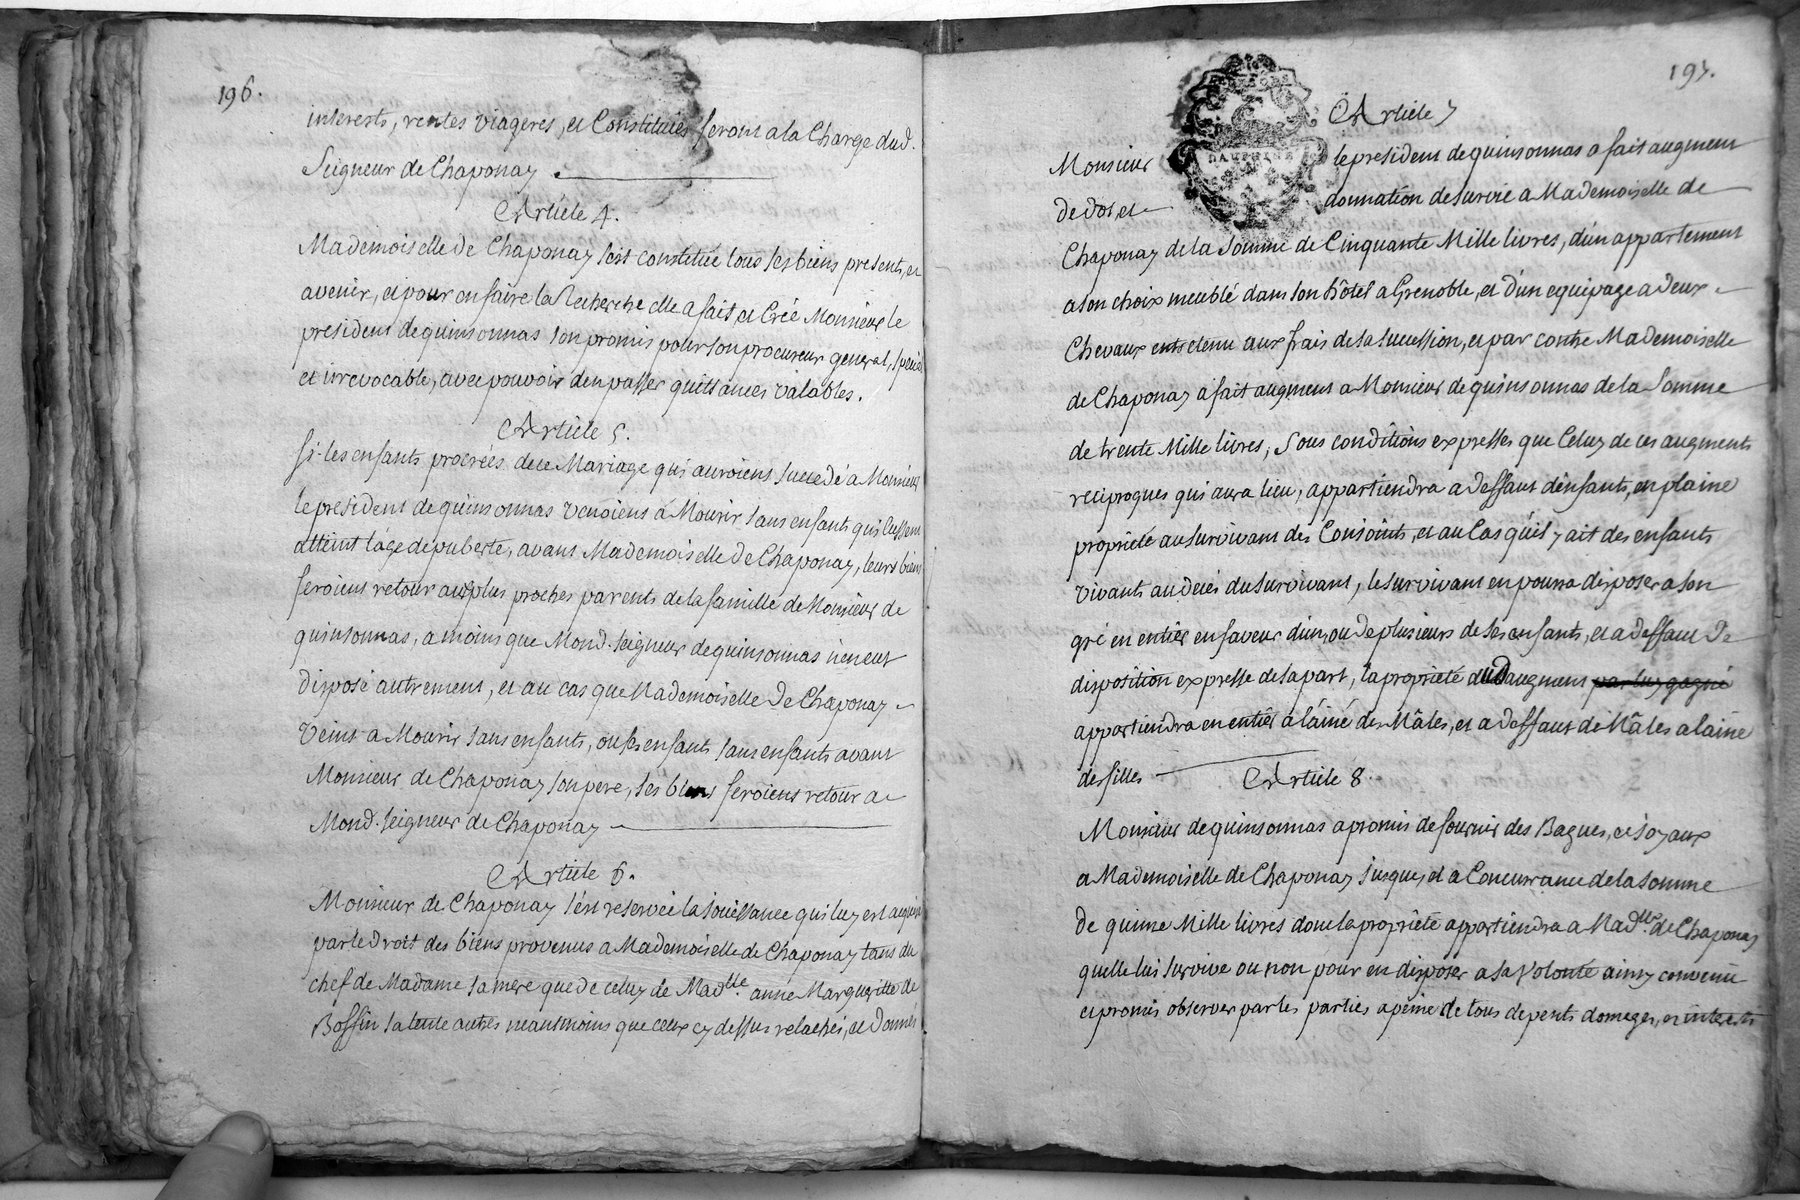 196.
interests, rentes viageres, et Constituées seront a la Charge dud.
Seigneur de Chaponay
Article 4.
Mademoiselle de Chaponay s'est constitué tous ses biens presents, et
avenir, et pour en faire la Recherche elle a fait, et Créé Monsieur le
president de quinsonnas son promis pour son procureur general, special
et irrevocable, avec pouvoir den passer quittances valables.
Article 5.
Si les enfants procréés de ce Mariage qui auroient succedé a Monsieur
le president de quinsonnas venoient a Mourir sans enfants qui eussent
atteint l'age de puberte, avant Mademoiselle de Chaponay, leurs biens
feroient retour aux plus proches parents de la famille de Monsieur de
quinsonnas, a moins que Mond. seigneur de quinsonnas n'en eut
disposé autrement, et au cas que Mademoiselle de Chaponay
Vient a Mourir sans enfants, ou ses enfants sans enfants avant
Monsieur de Chaponay son pere, ses biens feroient retour a
Mond. seigneur de Chaponay
Article 6.
Monsieur de Chaponay s'est reservée la jouissance qui luy est acquise
par le Droit des biens provenus a Mademoiselle de Chaponay tans du
chef de Madame sa mere que de celuy de Madlle. anne Margueritte de
Boffin sa tante autres neantmoins que ceux cy dessus relachés, et donnés
197.
DAUPHINE
Article 7
Monsieur le president de quinsonnas a fait augment
de dot et donnation de survie a Mademoiselle de
Chaponay de la somme de Cinquante Mille livres, d'un appartement
a son choix meublé dans son hôtel a Grenoble, et d'un equipage a deux
Chevaux entretenu aux frais de sa succession, et par contre Mademoiselle
de Chaponay a fait augment a Monsieur de quinsonnas de la somme
de trente Mille livres, sous conditions expresses que Celuy de ces augments
reciproques qui aura lieu, appartiendra a deffaut d'enfants, en plaine
propriété au survivant des Conjoints, et au Cas qu'il y ait des enfants
vivants au decés du survivant, le survivant en pourra disposer a son
gré en entier en faveur d'un, ou de plusieurs de ses enfants, et a deffaut de
disposition expresse de sa part, la propriété dud augment par luy gagné
appartiendra en entier a l'ainé des Mâles, et a deffaut de Mâles a l'ainé
des filles
Article 8.
Monsieur de quinsonnas a promis de fournir des Bagues, et joyaux
a Mademoiselle de Chaponay jusques, et a Concurrance de la somme
de quinze Mille livres dont la propriété appartiendra a Madlle. de Chaponay
quelle lui survive ou non pour en disposer a sa volonté ainsy convenu
et promis observer par les parties a peine de tous depents domages, et interests